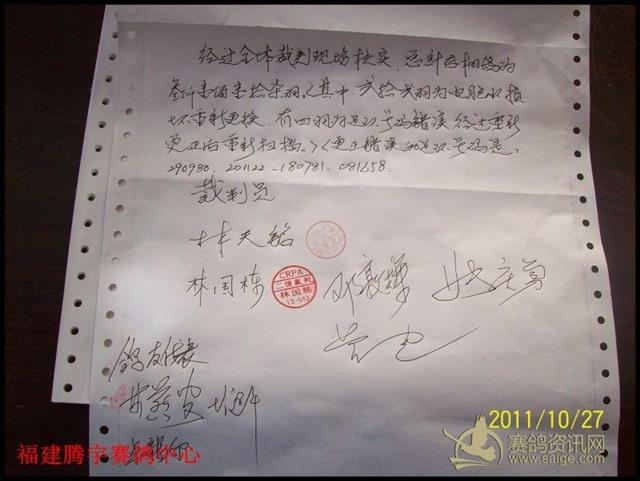 经过全体裁判现场核实，总计存棚鸽为
叁仟壹佰壹拾柒羽，（其中贰拾贰羽为电脑扣损
坏重新更换，有四羽为足环号码错误经过重新
更正后重新扫描。）（更正错误的足环号码是：
290980. 201122 - 180781. 081658.
裁判员
林天铭
林国栋
CRPA
二级裁判
林国栋
13-043
鸽友代表
2011/10/27
福建腾宇赛鸽中心
赛鸽资讯网
www.saige.com